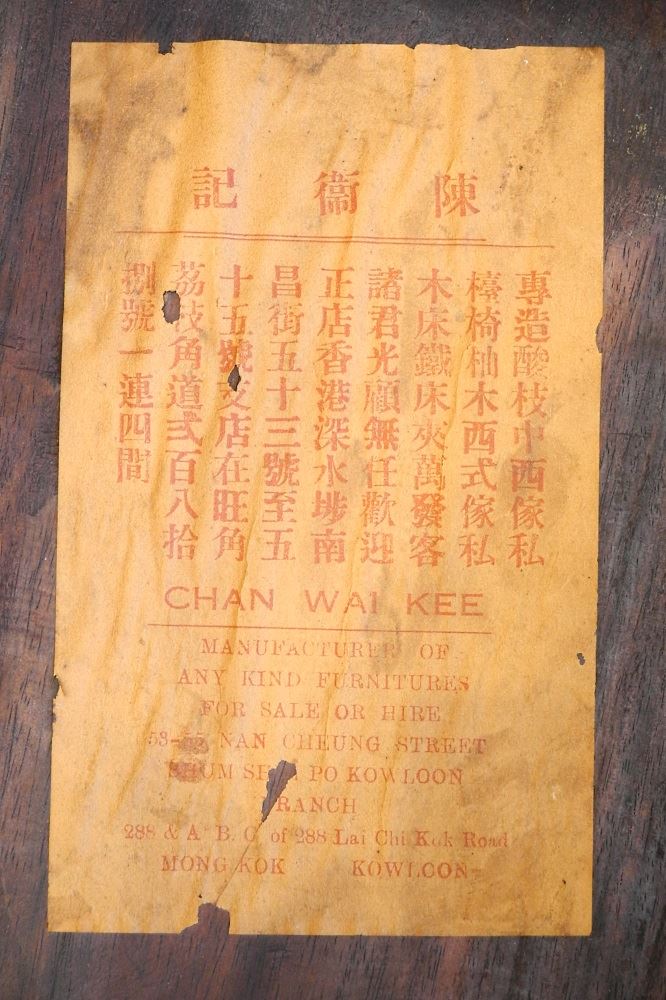 陳衞記
專造酸枝中西傢私
檯椅柚木西式傢私
木床鐵床夾萬發客
諸君光顧無任歡迎
正店香港深水埗南
昌街五十三號至五
十五號支店在旺角
荔枝角道弍百八拾
捌號一連四間
CHAN WAI KEE
MANUFACTURER OF
ANY KIND FURNITURES
FOR SALE OR HIRE
53-55 NAN CHEUNG STREET
PO KOWLOON
288 & A B. C of 288 Lai Chi Kok Road
MONG KOK KOWLOON